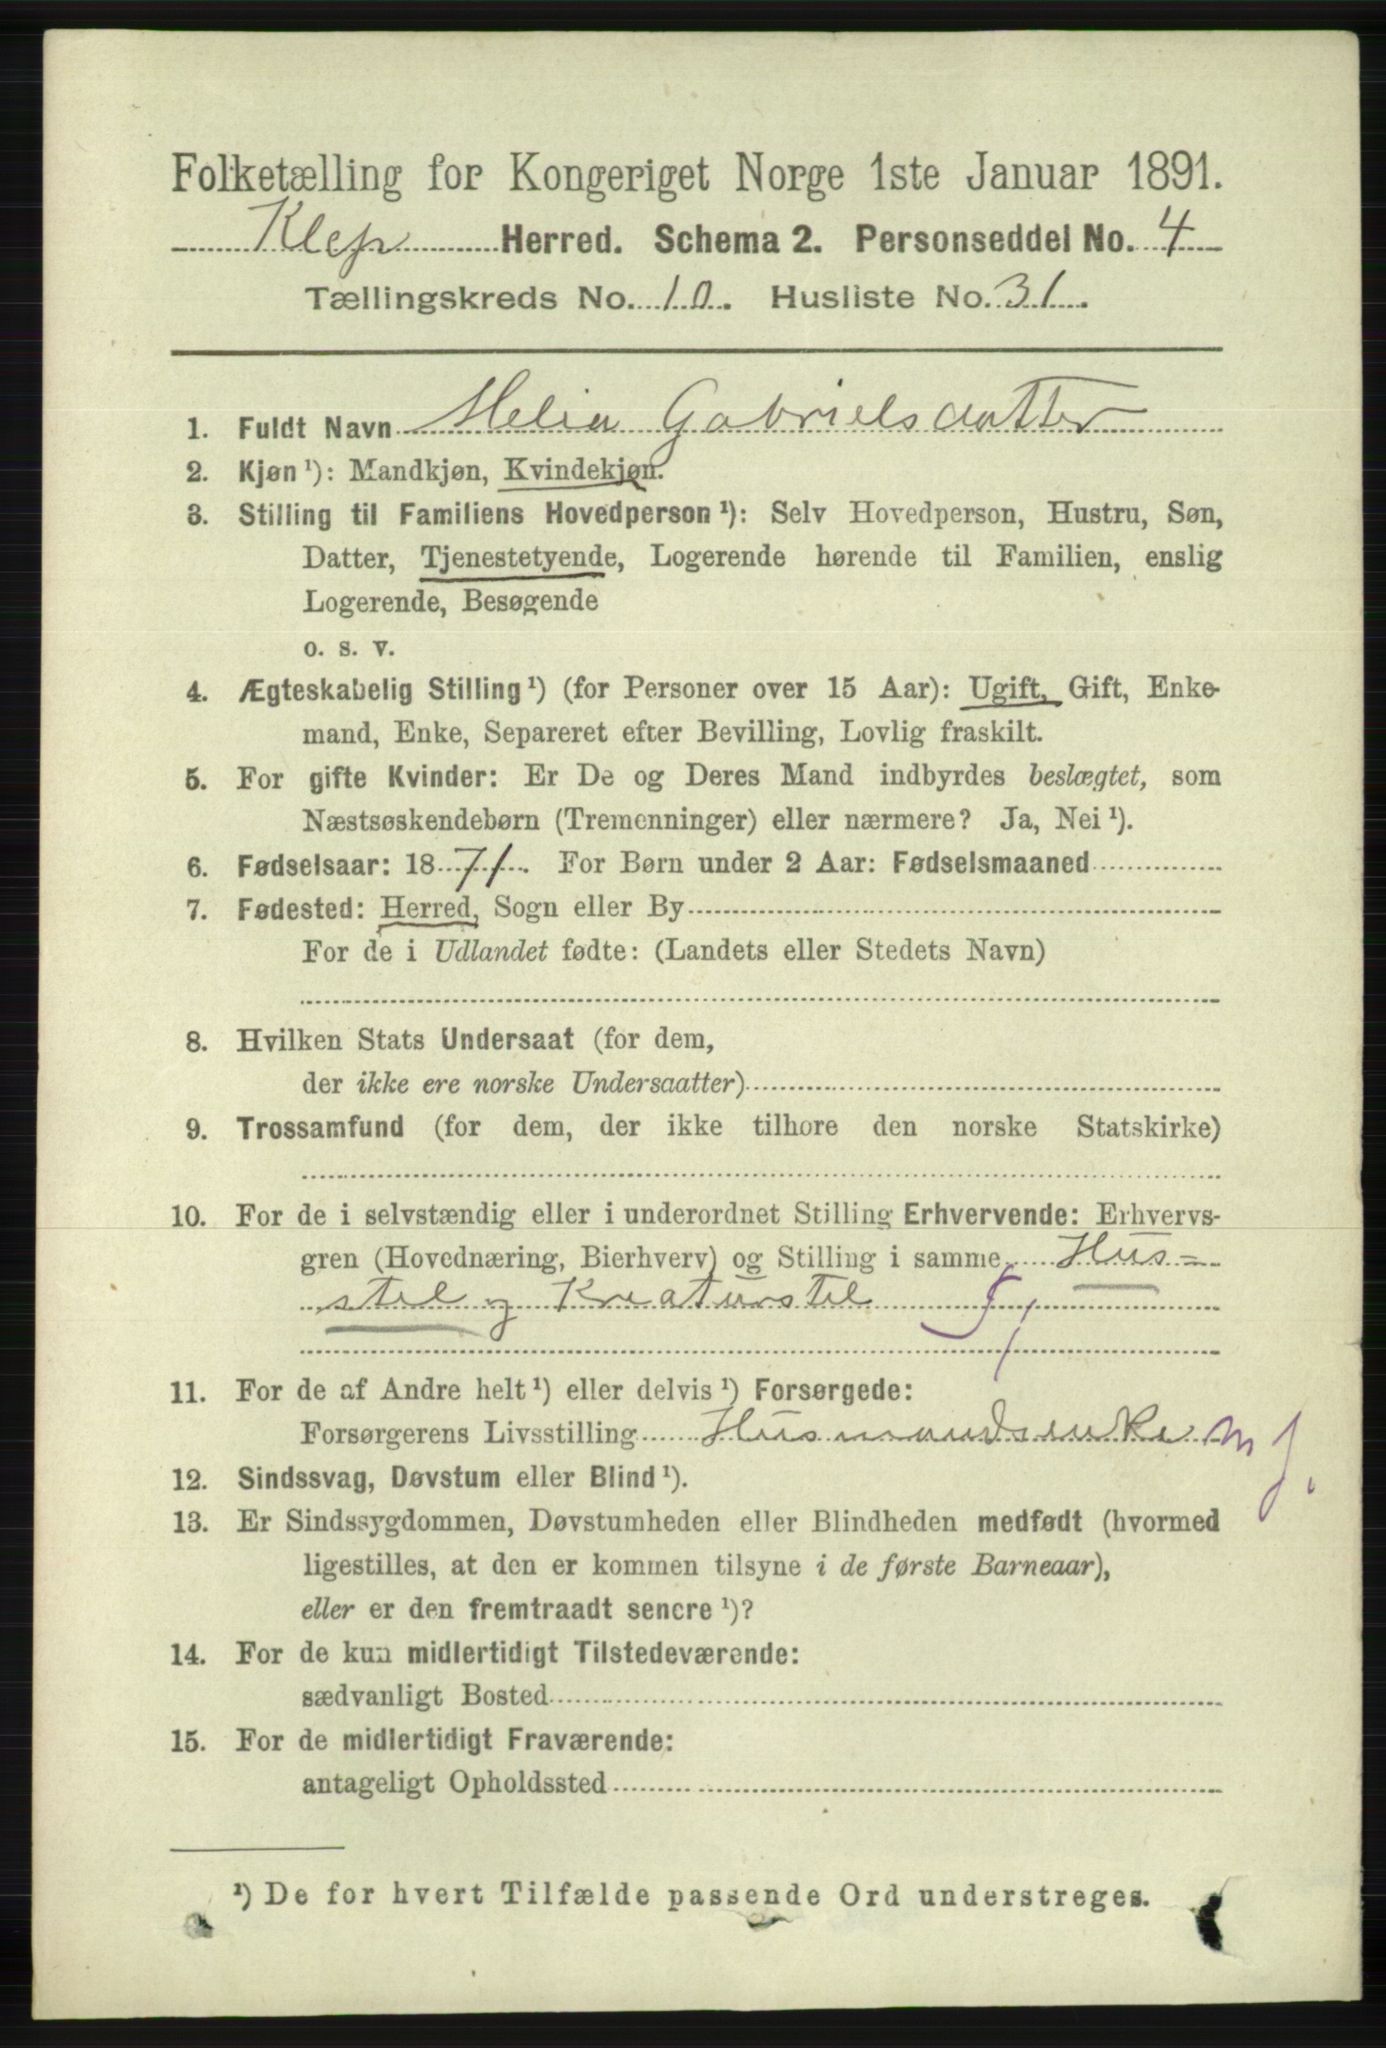 Folketælling for Kongeriget Norge 1ste Januar 1891.
Klep Herred. Schema 2. Personseddel No. 4
Tællingskreds No. 10. Husliste No. 31.
1. Fuldt Navn Melia Gabrielsdatter
2. Kjøn ¹): Mandkjøn, Kvindekjøn.
3. Stilling til Familiens Hovedperson ¹): Selv Hovedperson, Hustru, Søn,
Datter, Tjenestetyende, Logerende hørende til Familien, enslig
Logerende, Besøgende
o. s. v.
4. Ægteskabelig Stilling ¹) (for Personer over 15 Aar): Ugift, Gift, Enke-
mand, Enke, Separeret efter Bevilling, Lovlig fraskilt.
5. For gifte Kvinder: Er De og Deres Mand indbyrdes beslægtet, som
Næstsøskendebørn (Tremenninger) eller nærmere? Ja, Nei ¹).
6. Fødselsaar: 1871. For Børn under 2 Aar: Fødselsmaaned
7. Fødested: Herred, Sogn eller By
For de i Udlandet fødte: (Landets eller Stedets Navn)
8. Hvilken Stats Undersaat (for dem,
der ikke ere norske Undersaatter)
9. Trossamfund (for dem, der ikke tilhøre den norske Statskirke)
10. For de i selvstændig eller i underordnet Stilling Erhvervende: Erhvervs-
gren (Hovednæring, Bierhverv) og Stilling i samme Hus-
stel og Kreaturstel
11. For de af Andre helt ¹) eller delvis ¹) Forsørgede:
Forsørgerens Livsstilling Husmandsenke m J.
12. Sindssvag, Døvstum eller Blind ¹).
13. Er Sindssygdommen, Døvstumheden eller Blindheden medfødt (hvormed
ligestilles, at den er kommen tilsyne i de første Barneaar),
eller er den fremtraadt senere ¹)?
14. For de kun midlertidigt Tilstedeværende:
sædvanligt Bosted
15. For de midlertidigt Fraværende:
antageligt Opholdssted
¹) De for hvert Tilfælde passende Ord understreges.